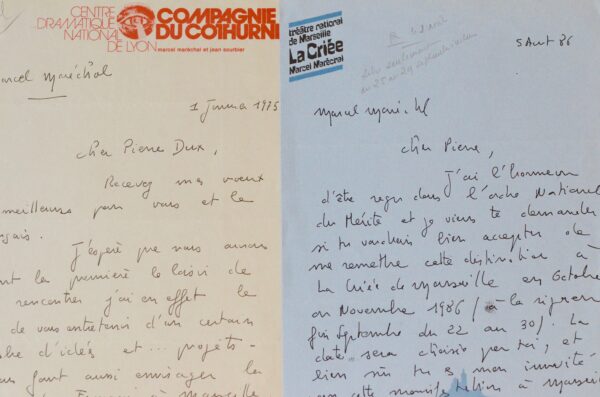 CENTRE
DRAMATIQUE
NATIONAL
DE LYON
COMPAGNIE
DU COTHURNE
marcel maréchal et jean sourbier
Marcel Maréchal
1 janvier 1975
Cher Pierre Dux,
Recevez mes vœux
meilleurs pour vous et le
J'espère que nous aurons
la première le loisir de
rencontrer j'ai en effet le
de vous entretenir d'un certain
d'idées et ... projets -
faut aussi envisager la
à Marseille
théâtre national
de Marseille
La Criée
Marcel Maréchal
5 Aout 86
Marcel Maréchal
Cher Pierre,
J'ai l'honneur
d'être reçu dans l'ordre National
du Mérite et je viens te demander
si tu voudrais bien accepter de
me remettre cette distinction à
La Criée de Marseille en Octobre
ou Novembre 1986 / à la rigueur
fin Septembre du 22 au 30/. La
date sera choisie par toi, et
bien sûr tu es mon invité
cette manifestation à Marseille